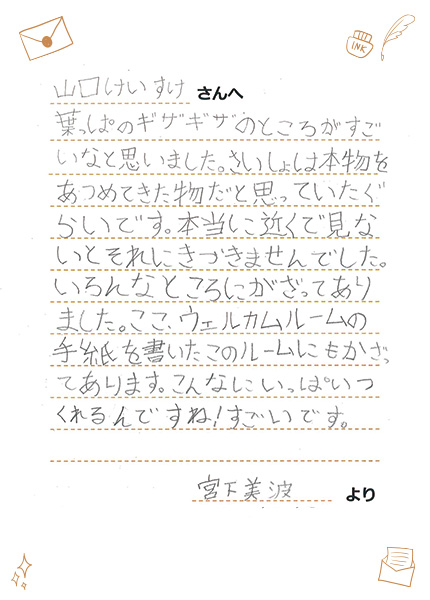 INK
山口けいすけ さんへ
葉っぱのギザギザのところがすご
いなと思いました。さいしょは本物を
あつめてきた物だと思っていたぐ
らいです。本当に近くで見な
いとそれにきづきませんでした。
いろんなところにがざってあり
ました。ここ、ウェルカムルームの
手紙を書いたこのルームにもかざっ
てあります。こんなにいっぱいつ
くれるんですね!すごいです。
宮下美波 より